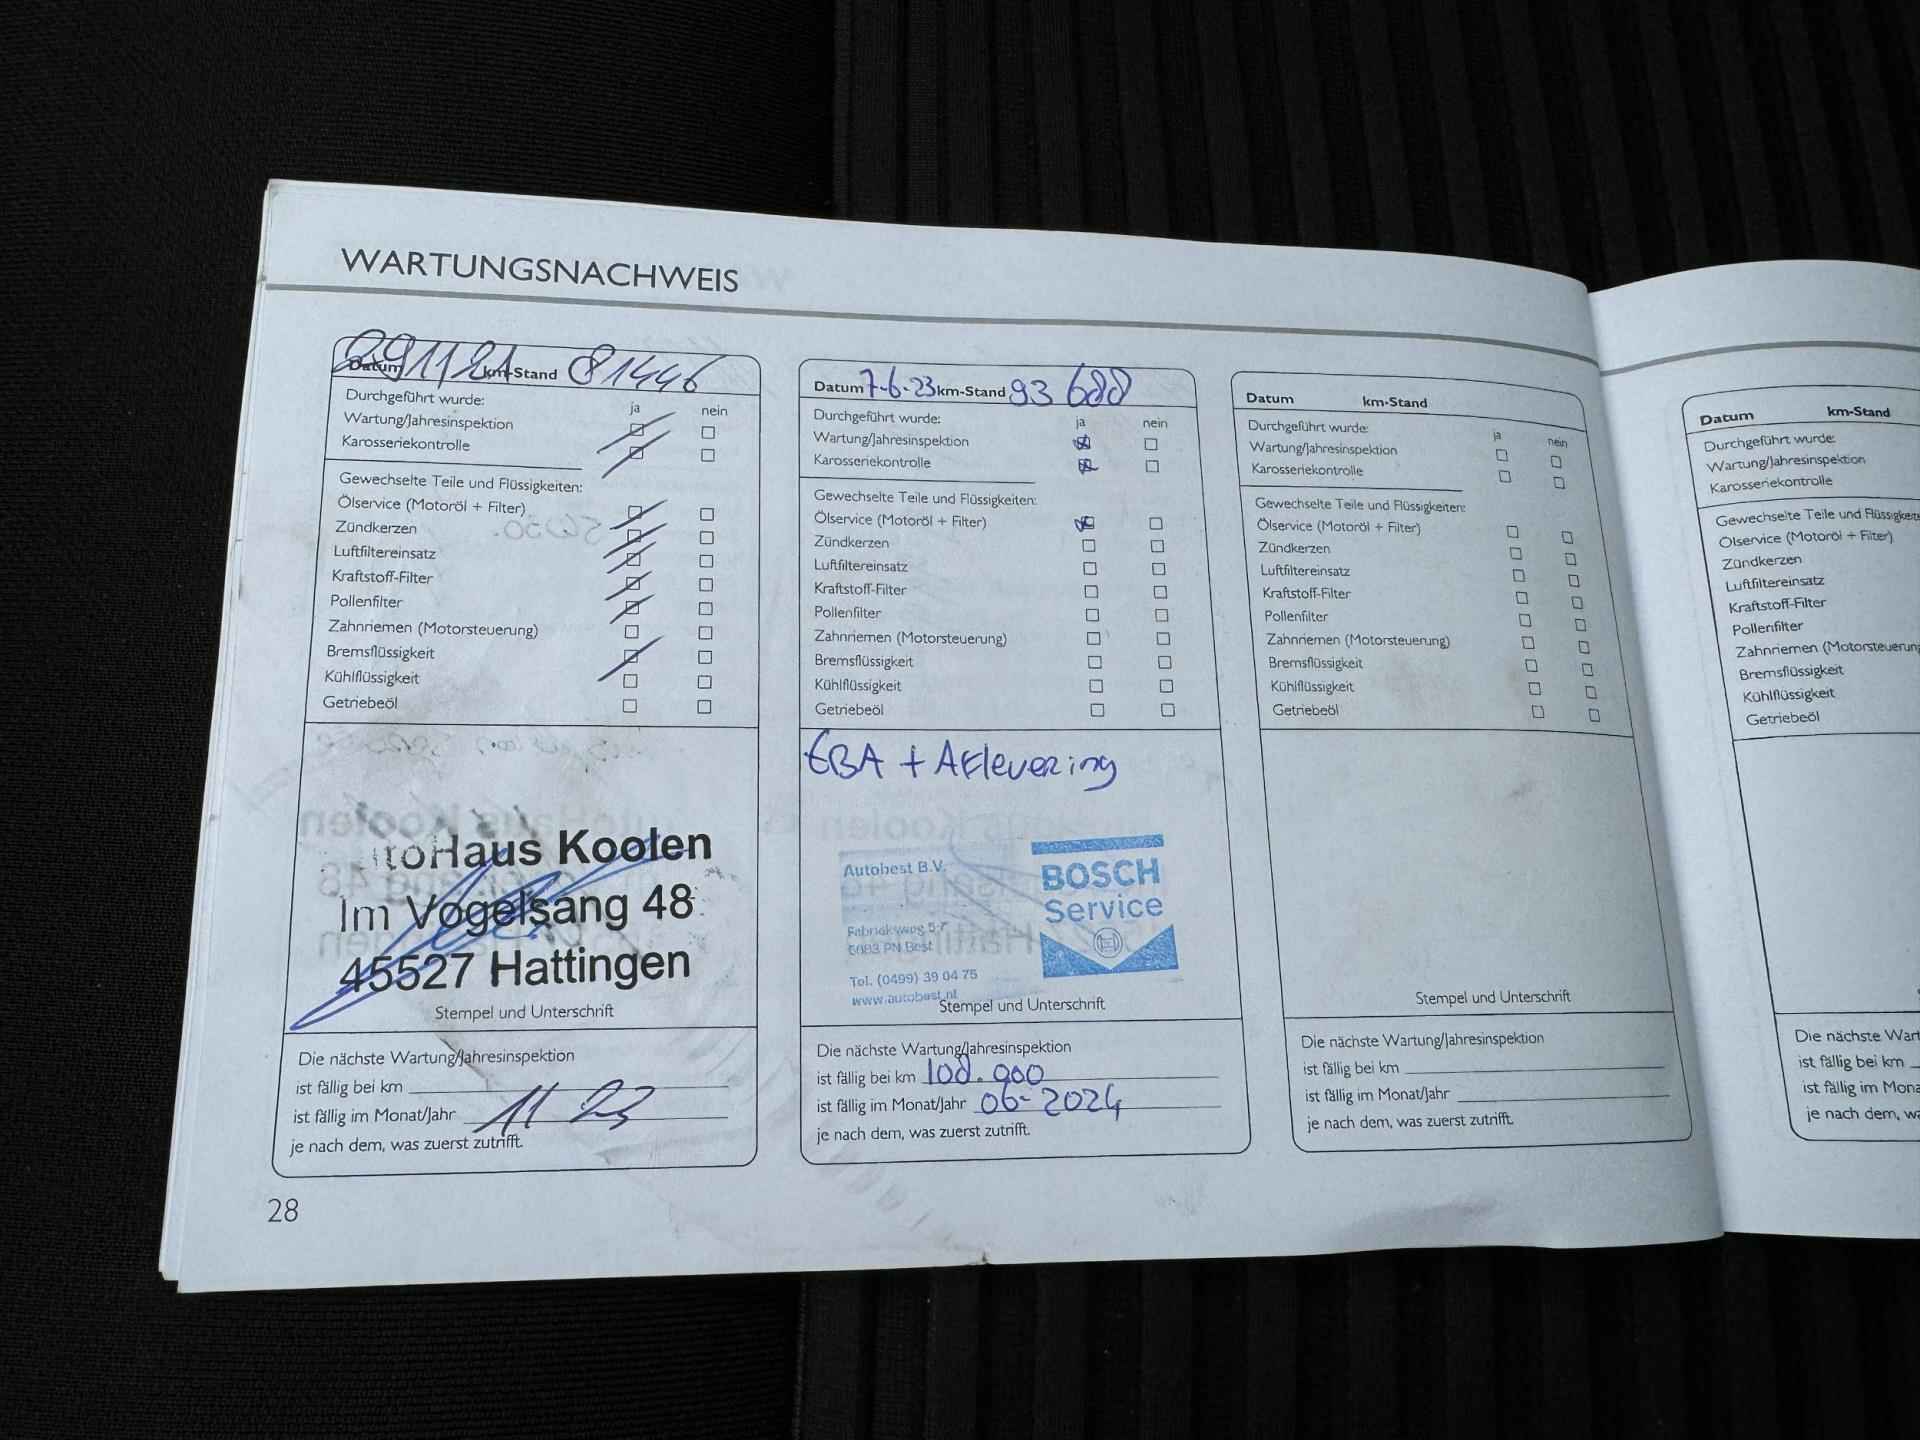 WARTUNGSNACHWEIS
Datum 29 11 21 km-Stand 81446
Durchgeführt wurde: ja nein
Wartung/Jahresinspektion
Karosseriekontrolle
Gewechselte Teile und Flüssigkeiten:
Ölservice (Motoröl + Filter)
Zündkerzen
Luftfiltereinsatz
Kraftstoff-Filter
Pollenfilter
Zahnriemen (Motorsteuerung)
Bremsflüssigkeit
Kühlflüssigkeit
Getriebeöl
toHaus Koolen
Im Vogelsang 48
45527 Hattingen
Stempel und Unterschrift
Die nächste Wartung/Jahresinspektion
ist fällig bei km
ist fällig im Monat/Jahr 11 23
je nach dem, was zuerst zutrifft.
28
Datum 7-6-23 km-Stand 93 688
Durchgeführt wurde: ja nein
Wartung/Jahresinspektion
Karosseriekontrolle
Gewechselte Teile und Flüssigkeiten:
Ölservice (Motoröl + Filter)
Zündkerzen
Luftfiltereinsatz
Kraftstoff-Filter
Pollenfilter
Zahnriemen (Motorsteuerung)
Bremsflüssigkeit
Kühlflüssigkeit
Getriebeöl
GBA + Aflevering
Autobest B.V.
BOSCH
Service
Fabrieksweg 5-7
5683 PN Best
Tel. (0499) 39 04 75
www.autobest.nl
Stempel und Unterschrift
Die nächste Wartung/Jahresinspektion
ist fällig bei km 108.000
ist fällig im Monat/Jahr 06-2024
je nach dem, was zuerst zutrifft.
Datum km-Stand
Durchgeführt wurde: ja nein
Wartung/Jahresinspektion
Karosseriekontrolle
Gewechselte Teile und Flüssigkeiten:
Ölservice (Motoröl + Filter)
Zündkerzen
Luftfiltereinsatz
Kraftstoff-Filter
Pollenfilter
Zahnriemen (Motorsteuerung)
Bremsflüssigkeit
Kühlflüssigkeit
Getriebeöl
Stempel und Unterschrift
Die nächste Wartung/Jahresinspektion
ist fällig bei km
ist fällig im Monat/Jahr
je nach dem, was zuerst zutrifft.
Datum km-Stand
Durchgeführt wurde:
Wartung/Jahresinspektion
Karosseriekontrolle
Gewechselte Teile und Flüssigkeite
Ölservice (Motoröl + Filter)
Zündkerzen
Luftfiltereinsatz
Kraftstoff-Filter
Pollenfilter
Zahnriemen (Motorsteuerung
Bremsflüssigkeit
Kühlflüssigkeit
Getriebeöl
Die nächste Wart
ist fällig bei km
ist fällig im Mona
je nach dem, wa